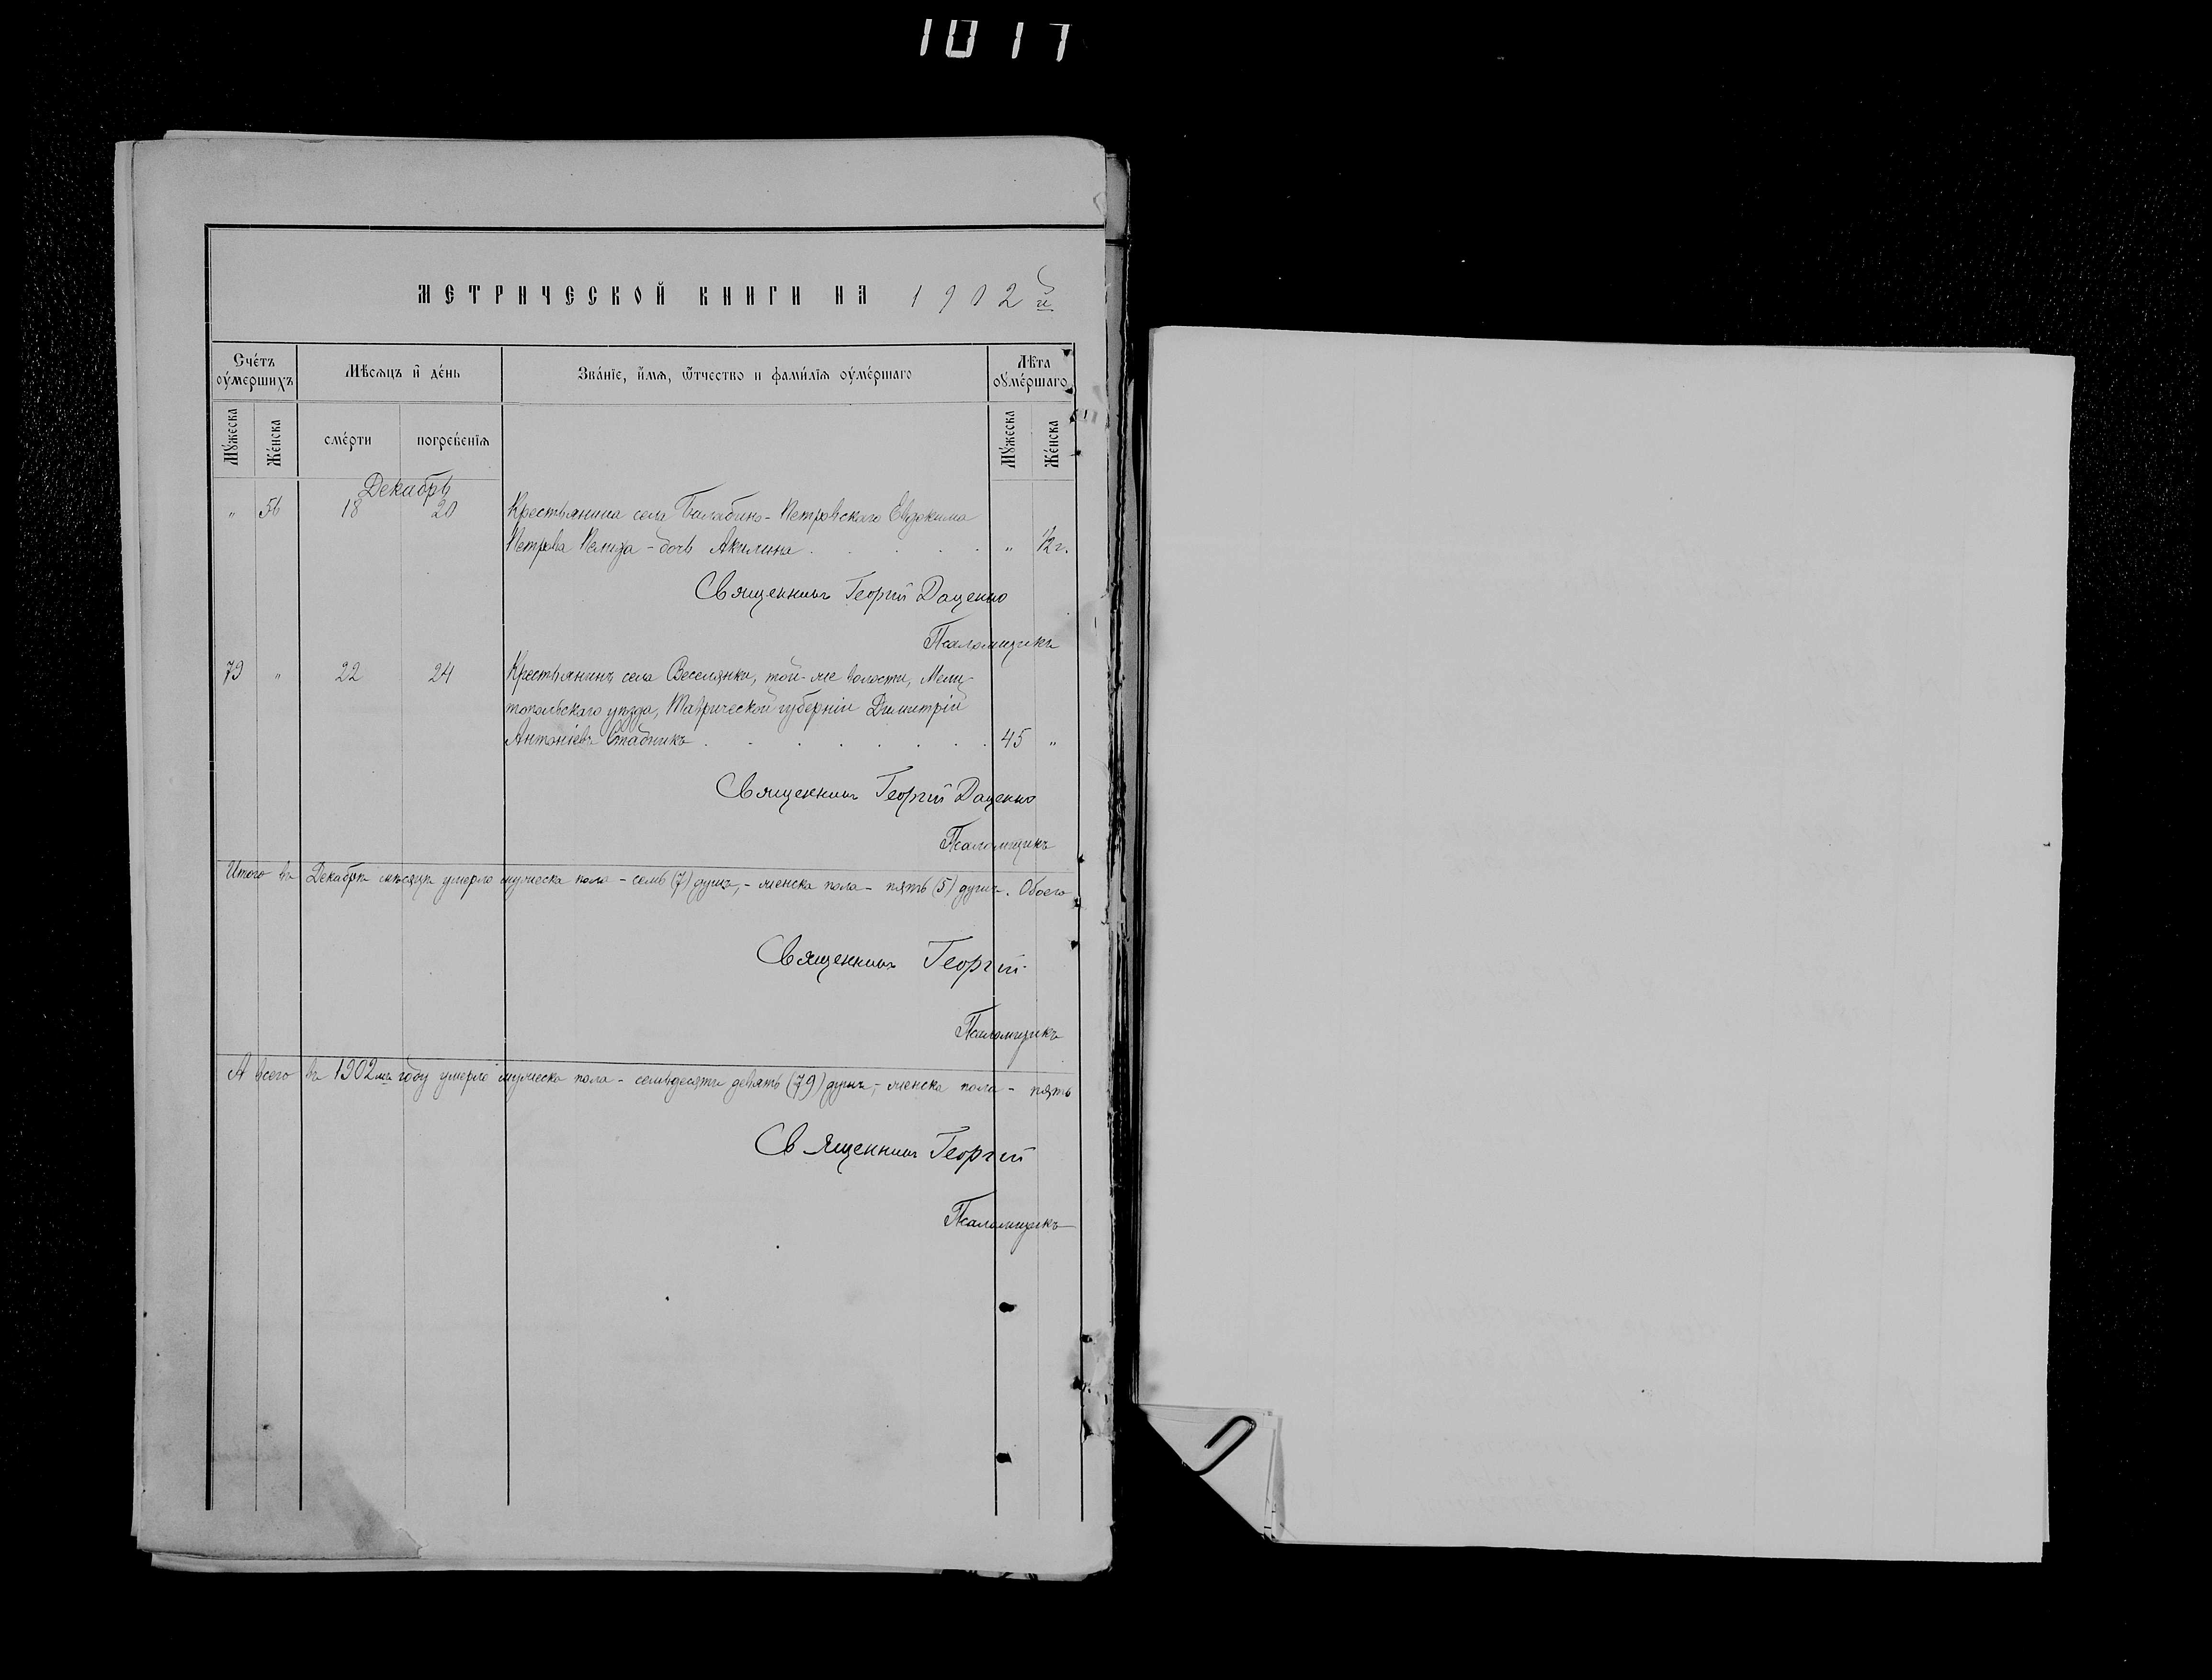 1017
МЕТРИЧЕСКОЙ КНИГИ НА 1902й
Счétъ оу҆ме́ршихъ
Мѣ́сѧцъ и҆ де́нь
Зва́нїе, и҆́мѧ, ѿ́чество и фами́лїѧ оу҆ме́ршаго
Лѣ́та оу҆ме́ршаго
Мꙋ́жеска
Же́нска
сме́рти
погребе́нїѧ
Мꙋ́жеска
Же́нска
Декабрь
" 56 18 20 Крестьянина села Балабино-Петровскаго Евдокима
Петрова дочь Акилина . . . . . " ½ г.
Священникъ Георгій Даценко
Псаломщикъ
79 " 22 24 Крестьянинъ села Веселянки, той-же волости, Мели-
топольскаго уѣзда, Таврической губерніи Димитрій
Антоніевъ Стадникъ . . . . . . . 45 "
Священникъ Георгій Даценко
Псаломщикъ
Итого въ Декабрѣ мѣсяцѣ умерло мужеска пола - семь (7) душъ, - женска пола - пять (5) душъ. Обоего
Священникъ Георгій
Псаломщикъ
А всего въ 1902мъ году умерло мужеска пола - семьдесятъ девять (79) душъ, - женска пола - пять
Священникъ Георгій
Псаломщикъ